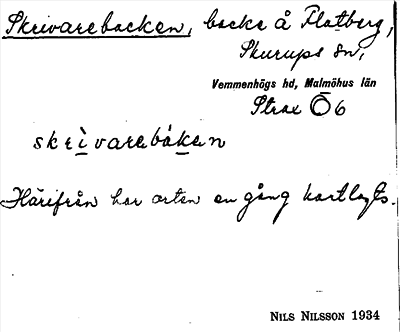 Skrivarebacken, backe å Platberg,
Skurups sn,
Vemmenhögs hd, Malmöhus län
Strax Ö 6
skrìvarebáken
Härifrån har orten en gång kartlagts.
NILS NILSSON 1934